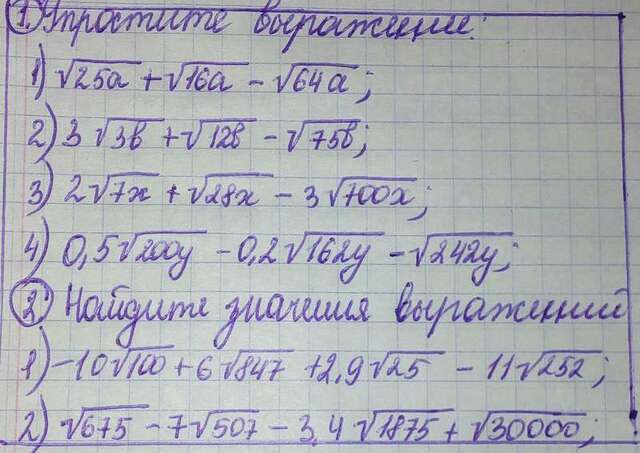 1) Упростите выражение:
1) √25a + √16a - √64a;
2) 3√3в + √12в - √75в;
3) 2√7x + √28x - 3√700x;
4) 0,5√200y - 0,2√162y - √242y;
2. Найдите значения выражений
1) -10√100 + 6√847 + 2,9√25 - 11√252;
2) √675 - 7√507 - 3,4√1875 + √30000;